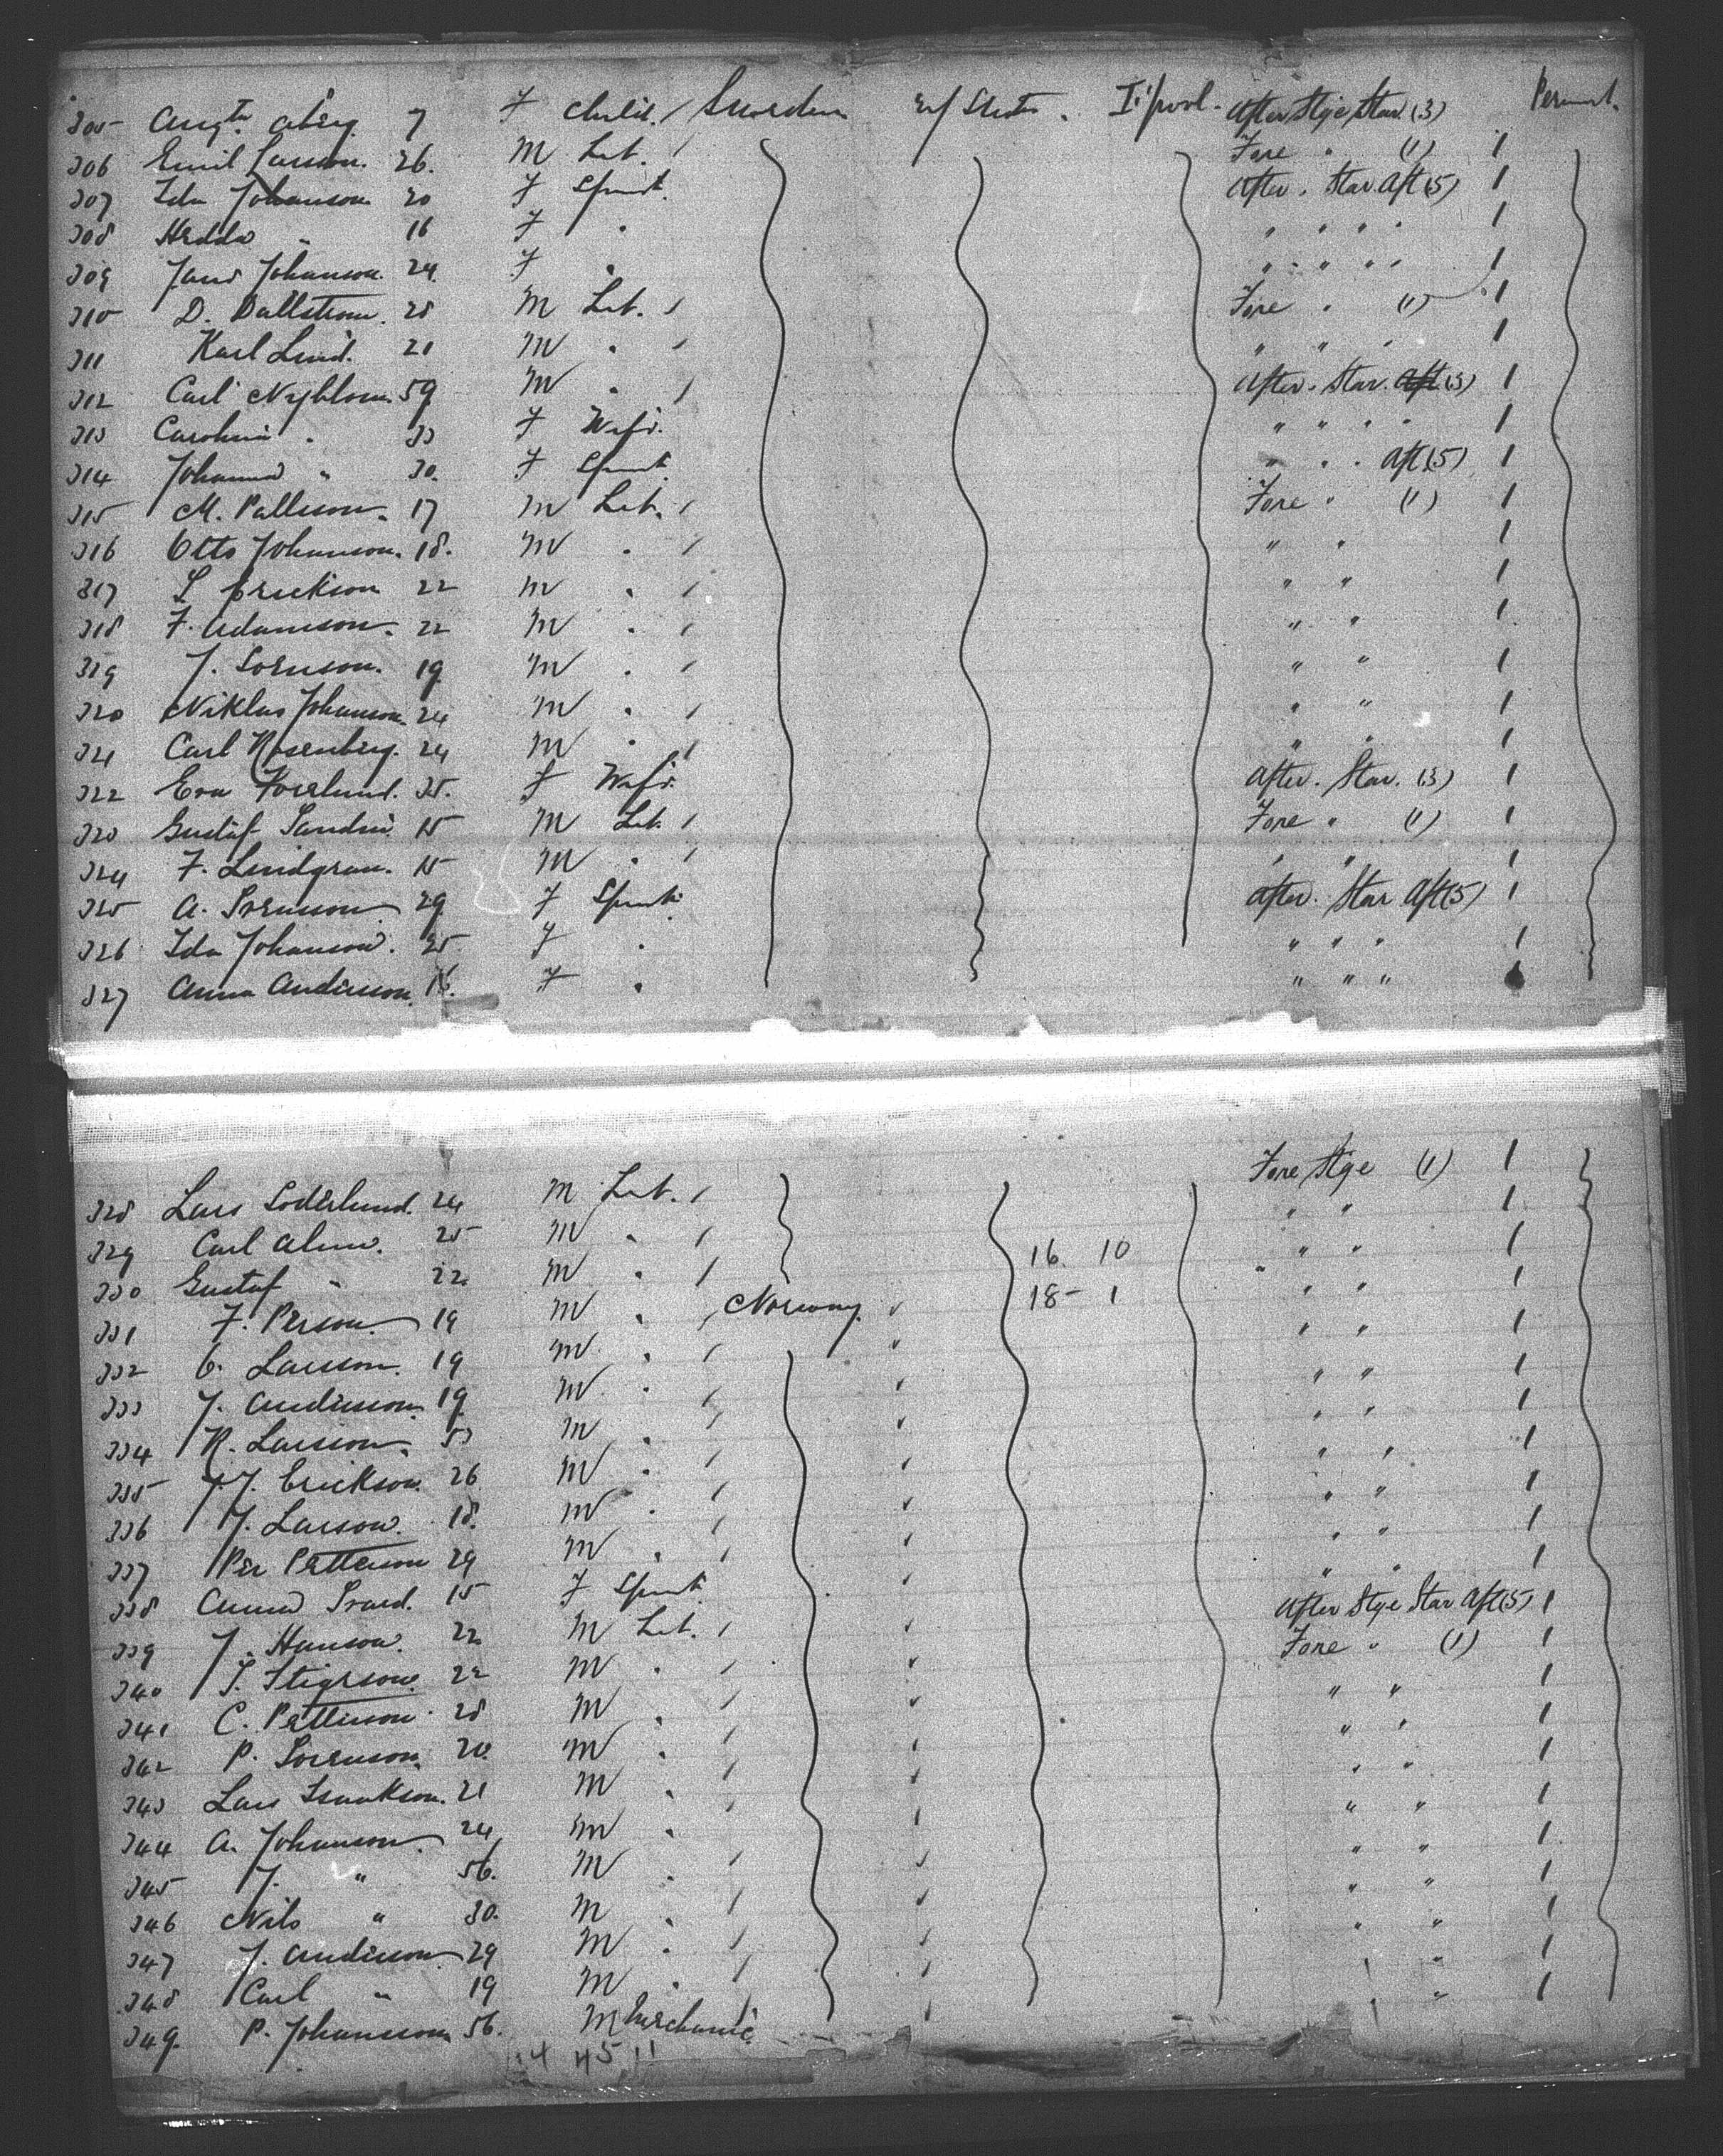 305 Augta Aberg 7 F Child / Sweden U/States L'pool After Stge Star (3) Permnt.
306 Emil Larson. 26. M Lab. / Fore " (1) /
307 Ida Johanson 20 F Spinst. After " Star Aft (5) /
308 Hedda " 16 F " " " " " /
309 Johanson. 24 F " " " " " /
310 D. Dallstrom. 28 M Lab. / Fore " (1) /
311 Karl Lind. 21 M " / " " " /
312 Carl Nyblom. 59 M " / After " Star. Aft (3) /
313 Carolina " 33 F Wife. " " " " /
314 Johanna " 30. F Spinst. " " " Aft (5) /
315 M. Pallson. 17 M Lab. / Fore " (1) /
316 Otto Johanson. 18. M " / " " /
317 L Erickson 22 M " / " " /
318 F. Adamson. 22 M " / " " /
319 J. Sornson. 19 M " / " " /
320 Niklas Johanson. 24 M " / " " /
321 Carl Rosenberg. 24 M " / " " /
322 Eva Forslund. 35. F Wife. After. Star. (3) /
323 Gustaf 15 M Lab. / Fore " (1) /
324 F. Lindgran. 15 M " / " " /
325 A. Sornson 29 F Spinst. After. Star Aft (5) /
326 Ida Johanson. 25 F " " " " /
327 Anna Anderson. 18. F " " " "
328 Lars Soderlund. 24 M Lab. / Fore Stge (1) /
329 Carl Alm. 25 M " / " " /
330 Gustaf " 22. M " / 16. 10 " " /
331 F. Person. 19 M " / Norway. 18- 1 " " /
332 O. Larsson. 19 M " / " " /
333 J. Anderson 19 M " / " " /
334 R. Larsson. 53 M " / " " /
335 J. J. Erickson. 26 M " / " " /
336 J. Larson. 18. M " / " " /
337 Per Petterson 29 M " / " " /
338 Anna 15 F Spinst. After Stge Star Aft (5) /
339 J. Hanson. 22 M Lab. / Fore " (1) /
340 T. Stigrson. 22 M " / " " /
341 C. Petterson. 28 M " / " " /
342 P. Sorenson. 20. M " / " " /
343 Lars Isaakson. 21 M " / " " /
344 A. Johanson 24 M " / " " /
345 J. " 56. M " / " " /
346 Nils " 30. M " / " " /
347 J. Anderson 29 M " / " " /
348 Carl " 19 M " / " " /
349. P. Johansson 56. M Mechanic.
14 45 11